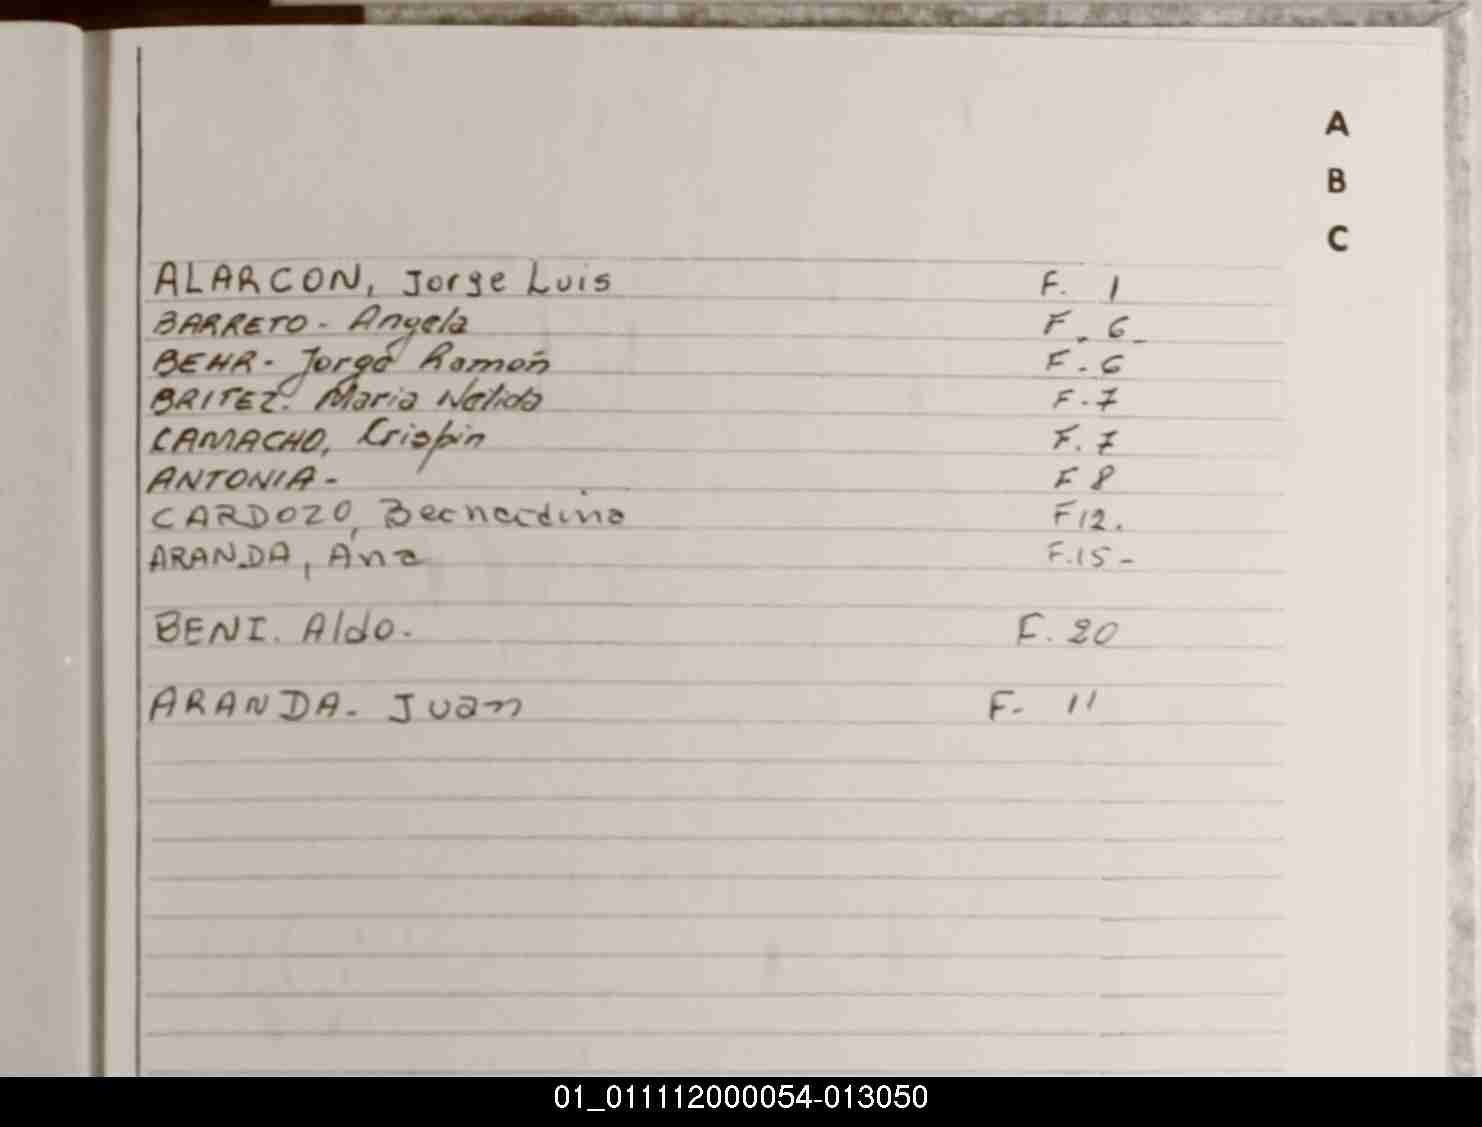 A
B
C
ALARCON, Jorge Luis F. 1
BARRETO - Angela F. 6-
BEHR - Jorge Ramón F. 6
BRITEZ. Maria Nelida F. 7
CAMACHO, Crispin F. 7
ANTONIA - F 8
CARDOZO, Bernardino F 12.
ARANDA, Ana F. 15 -
BENI. Aldo. F. 20
ARANDA. Juan F. 11
01_011112000054-013050